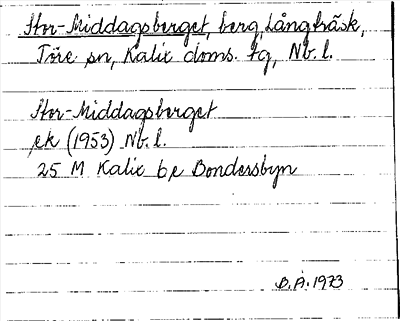 Stor-Middagsberget, berg, Långträsk,
Töre sn, Kalix doms. tg, Nb. l.
Stor-Middagsberget
ek (1953) Nb. l.
25 M Kalix be Bondersbyn
B.Å. 1973